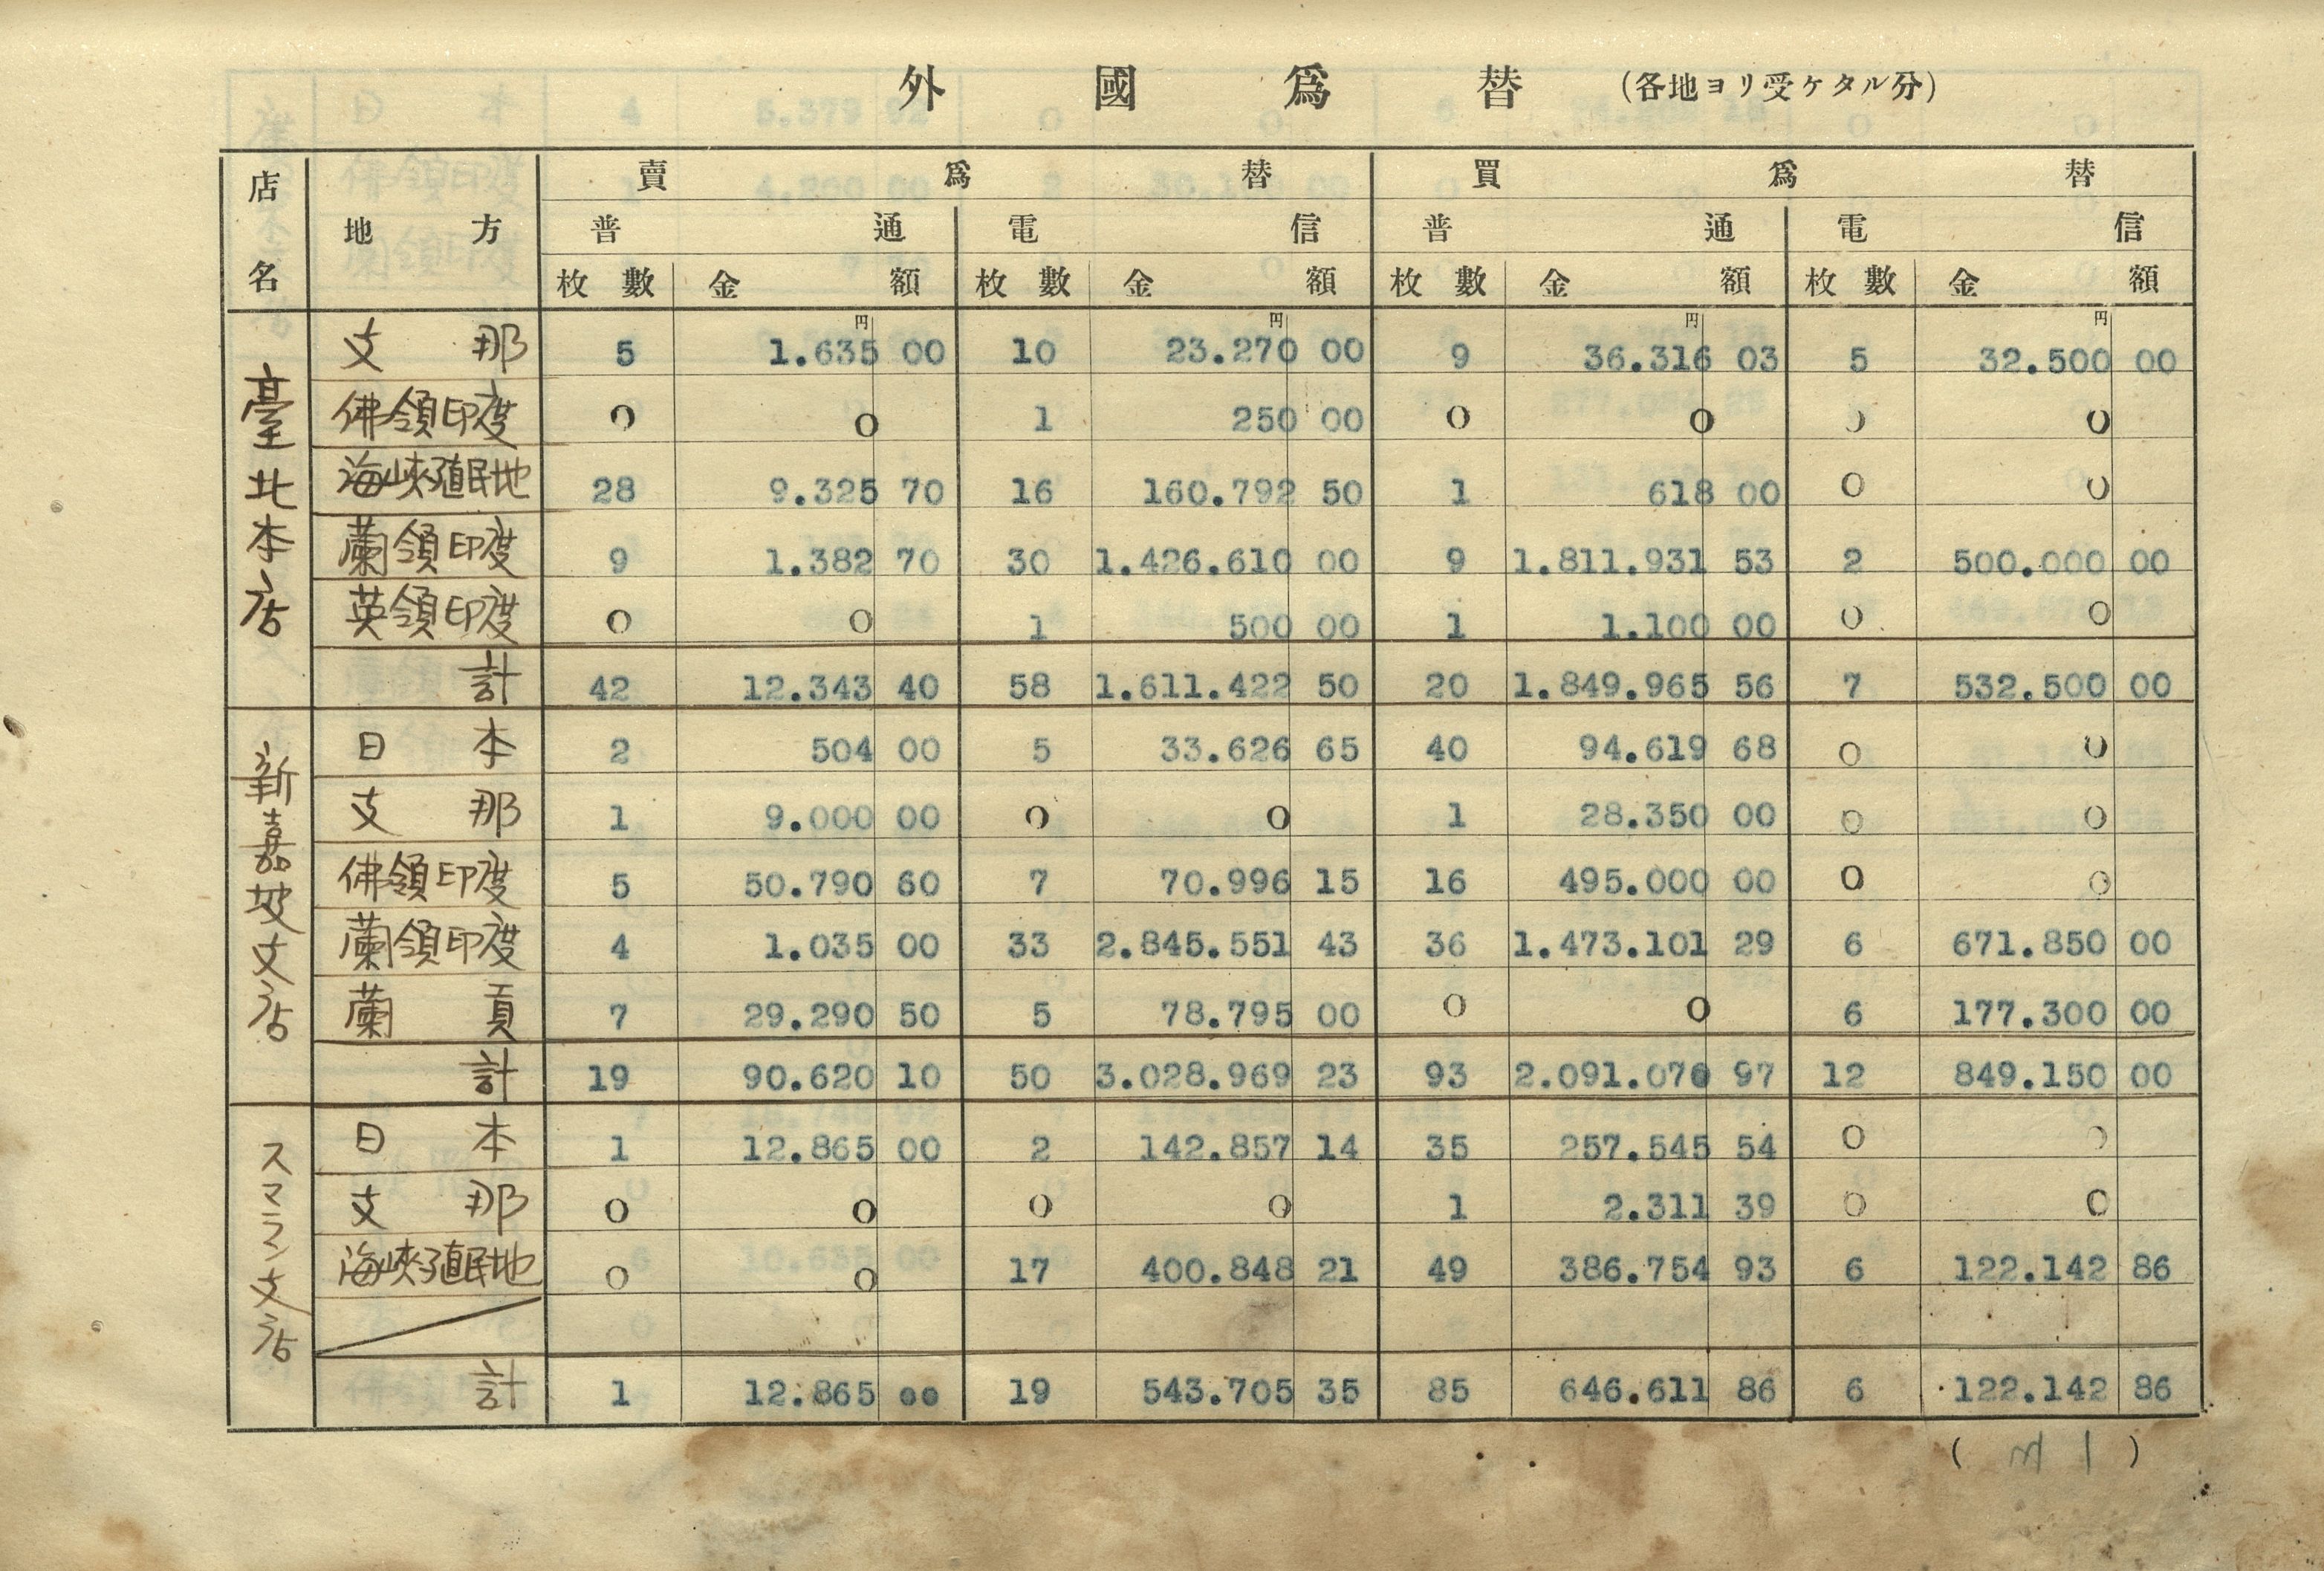 外國爲替 (各地ヨリ受ケタル分)
店名 地方 賣爲替 買爲替
普通 電信 普通 電信
枚數 金額 枚數 金額 枚數 金額 枚數 金額
円 円 円 円
臺北本店
支那 5 1.635 00 10 23.270 00 9 36.316 03 5 32.500 00
佛領印度 0 0 1 250 00 0 0 0 0
海峽殖民地 28 9.325 70 16 160.792 50 1 618 00 0 0
蘭領印度 9 1.382 70 30 1.426.610 00 9 1.811.931 53 2 500.000 00
英領印度 0 0 1 500 00 1 1.100 00 0 0
計 42 12.343 40 58 1.611.422 50 20 1.849.965 56 7 532.500 00
新嘉坡支店
日本 2 504 00 5 33.626 65 40 94.619 68 0 0
支那 1 9.000 00 0 0 1 28.350 00 0 0
佛領印度 5 50.790 60 7 70.996 15 16 495.000 00 0 0
蘭領印度 4 1.035 00 33 2.845.551 43 36 1.473.101 29 6 671.850 00
蘭貢 7 29.290 50 5 78.795 00 0 0 6 177.300 00
計 19 90.620 10 50 3.028.969 23 93 2.091.070 97 12 849.150 00
スマラン支店
日本 1 12.865 00 2 142.857 14 35 257.545 54 0 0
支那 0 0 0 0 1 2.311 39 0 0
海峽殖民地 0 0 17 400.848 21 49 386.754 93 6 122.142 86
計 1 12.865 00 19 543.705 35 85 646.611 86 6 122.142 86